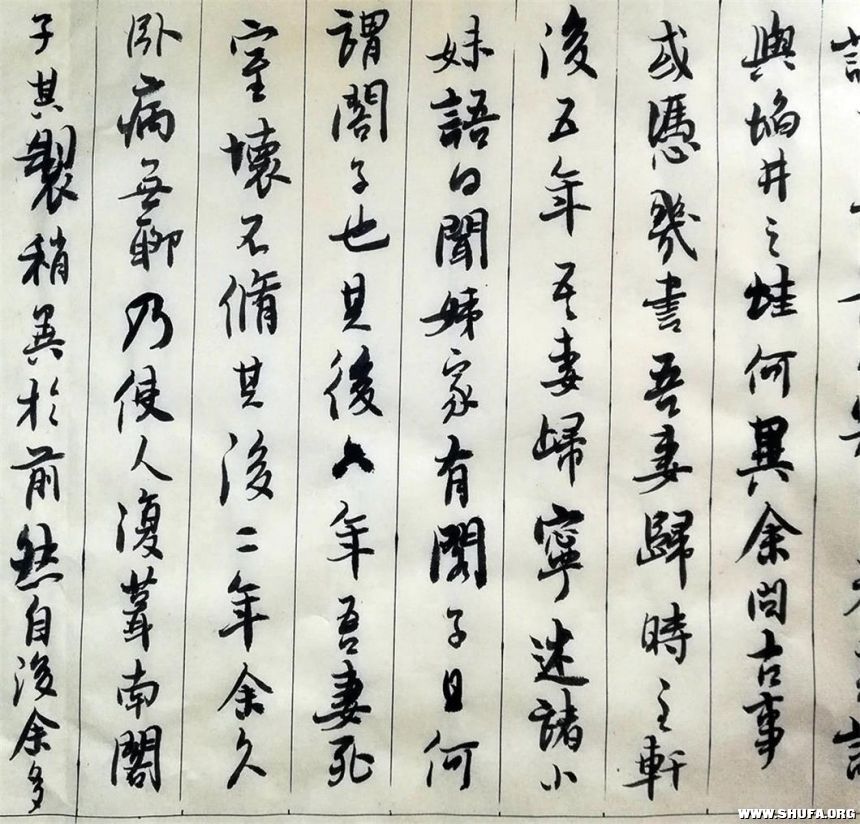 與埳井之蛙何異余問古事
或憑幾書吾妻歸時至軒
後五年吾妻歸寧述諸小
妹語曰聞姊家有閣子且何
謂閣子也其後六年吾妻死
室壞不脩其後二年余久
臥病無聊乃使人復葺南閣
子其製稍異於前然自後余多
WWW.SHUFA.ORG